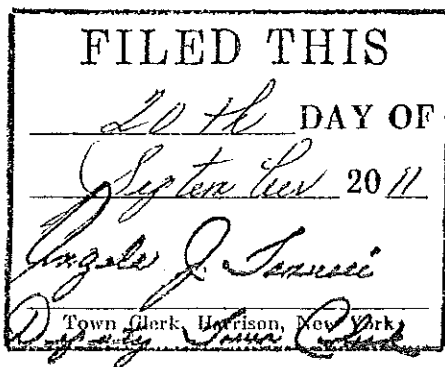 FILED THIS
20th DAY OF
September 2011
J.
Town Clerk, Harrison, New York
Deputy Town Clerk